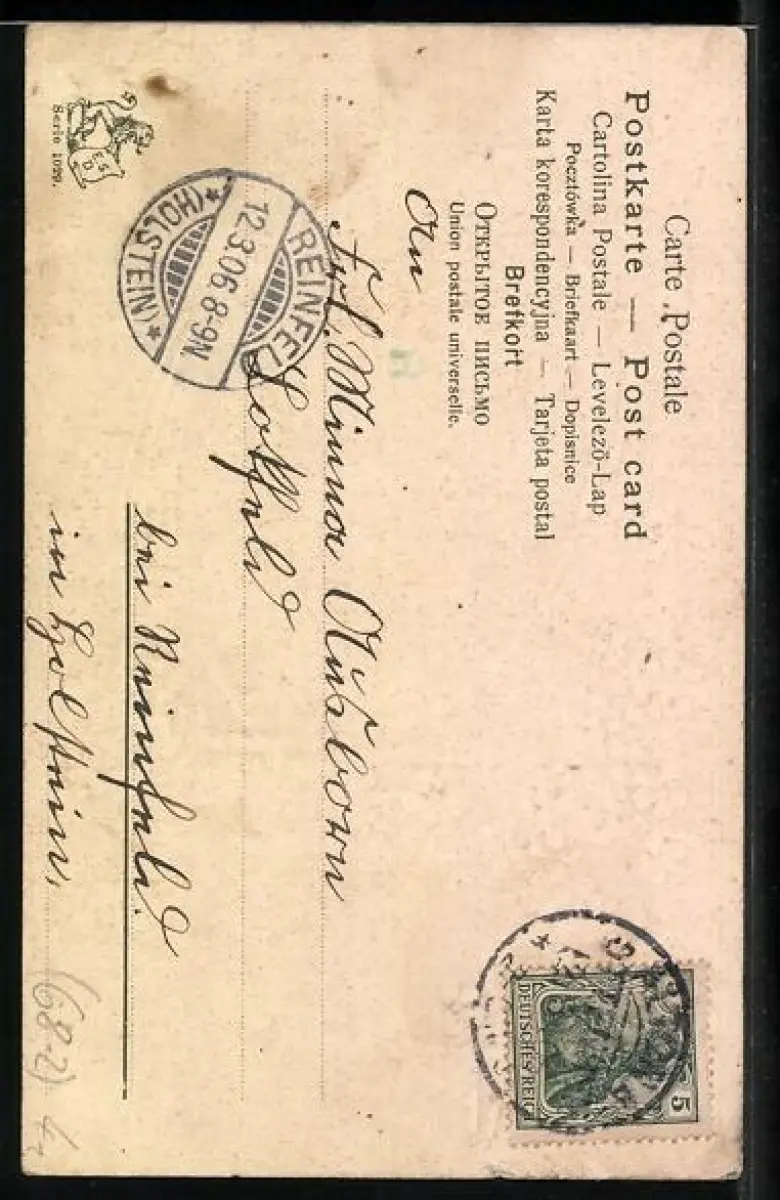 Carte Postale
Postkarte — Post card
Cartolina Postale — Levelező-Lap
Pocztówka — Briefkaart — Dopisnice
Karta korespondencyjna — Tarjeta postal
Brefkort
ОТКРЫТОЕ ПИСЬМО
Union postale universelle.
An
Frl. Minna
Lokfeld
bei Reinfeld
in Holstein.
REINFELD
12.3.06.8-9N
*(HOLSTEIN)*
Serie 1029.
5
DEUTSCHES REICH
(68-2)